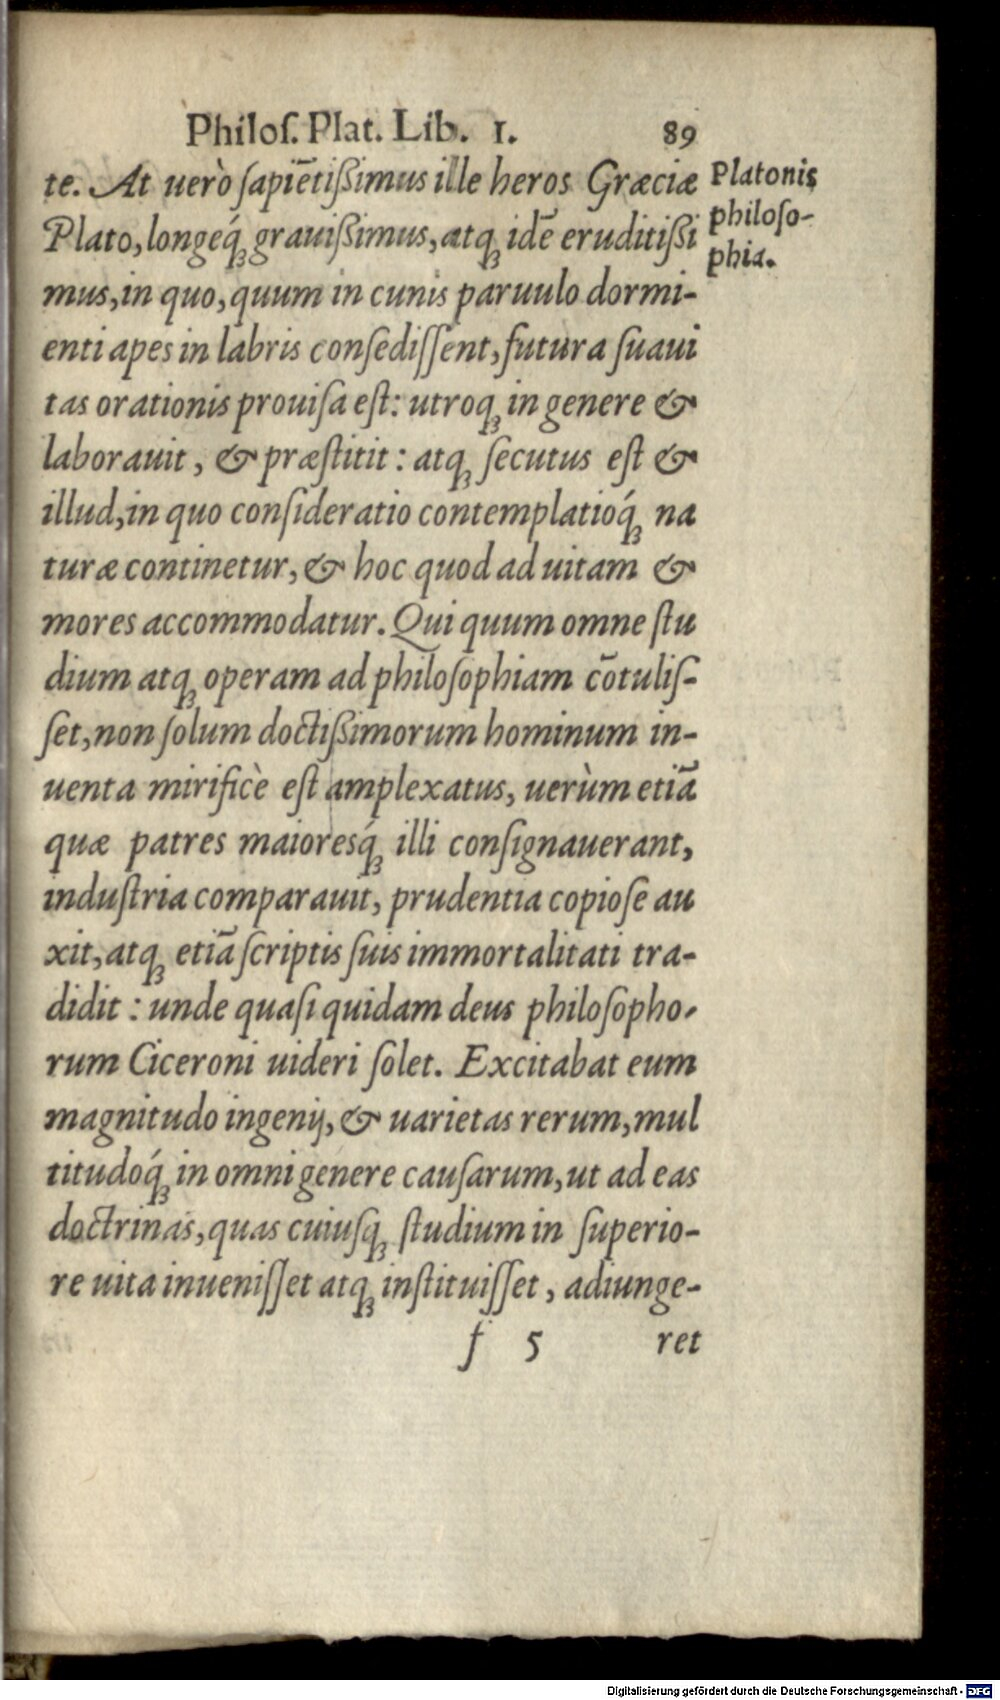 Philoſ. Plat. Lib. 1. 89
te. At uerò ſapiẽtiſſimus ille heros Græciæ
Plato, longeq́; grauiſſimus, atq; idẽ eruditiſſi
mus, in quo, quum in cunis paruulo dormi-
enti apes in labris conſediſſent, futura ſuaui
tas orationis prouiſa eſt: utroq; in genere &
laborauit, & præſtitit: atq; ſecutus eſt &
illud, in quo conſideratio contemplatioq́; na
turæ continetur, & hoc quod ad uitam &
mores accommodatur. Qui quum omne ſtu
dium atq; operam ad philoſophiam cõtuliſ-
ſet, non ſolum doctiſſimorum hominum in-
uenta mirificè eſt amplexatus, uerùm etiã
quæ patres maioresq́; illi conſignauerant,
induſtria comparauit, prudentia copioſe au
xit, atq; etiã ſcriptis ſuis immortalitati tra-
didit: unde quaſi quidam deus philoſopho-
rum Ciceroni uideri ſolet. Excitabat eum
magnitudo ingenij, & uarietas rerum, mul
titudoq́; in omni genere cauſarum, ut ad eas
doctrinas, quas cuiuſq; ſtudium in ſuperio-
re uita inueniſſet atq; inſtituiſſet, adiunge-
f 5 ret
Platonis
philoſo-
phia.
Digitalisierung gefördert durch die Deutsche Forschungsgemeinschaft - DFG